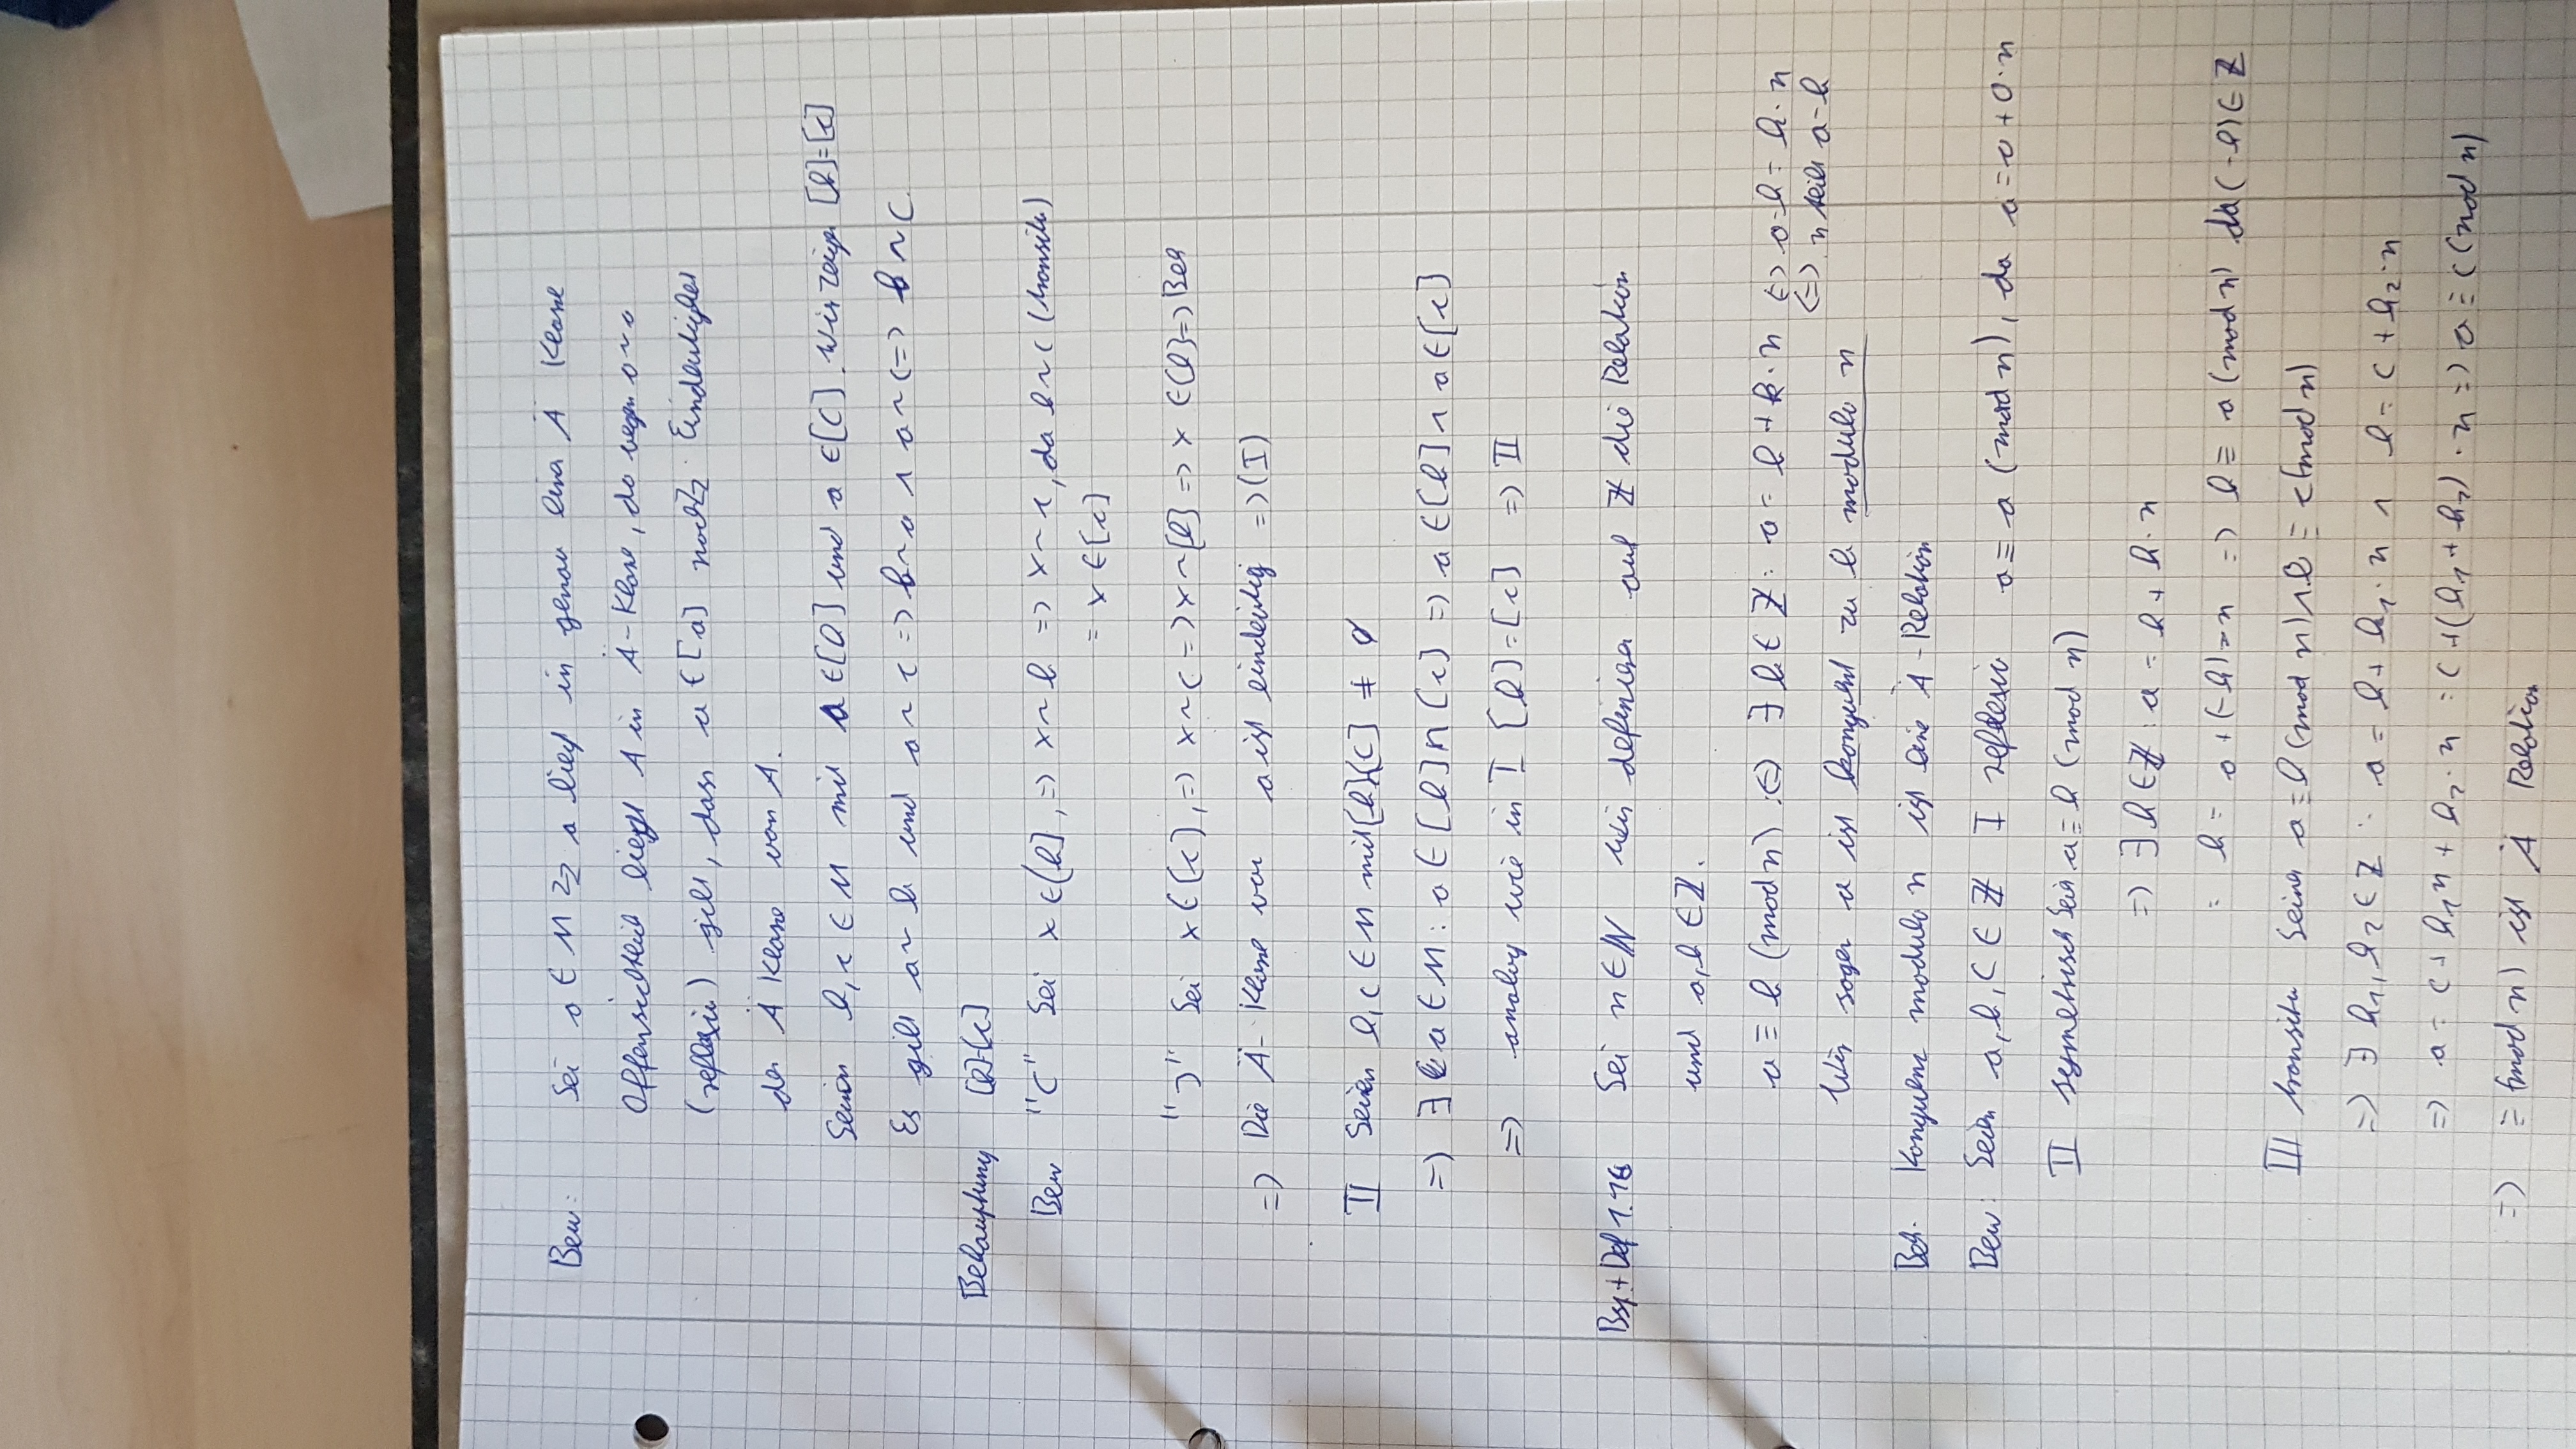 Bew: Sei a ∈ M zz a liegt in genau einer Ä Klasse
Offensichtlich liegt A in Ä-Klasse, da wegen a~a
(reflexiv) gilt, dass a ∈ [a] noch zz Eindeutigkeit
der Ä Klasse von A.
Seien b, c ∈ M mit a ∈ [b] und a ∈ [c]. Wir zeigen [b]=[c]
Es gilt a ~ b und a ~ c => b~a ∧ a~c => b ~ c.
Behauptung [b]=[c]
Bew "⊂" Sei x ∈ [b], => x~b => x~c, da b~c (transitiv)
= x ∈ [c]
"⊃" Sei x ∈ [c], => x~c => x~[b] => x ∈ [b] => Beh
=> Die Ä-Klasse von a ist eindeutig => (I)
II Seien b, c ∈ M mit [b] [c] ≠ ∅
=> ∃ a ∈ M : a ∈ [b] ∩ [c] => a ∈ [b] ∧ a ∈ [c]
=> analog wie in I [b]=[c] => II
Bsp.+Def 1.16 Sei n ∈ ℕ Wir definieren auf ℤ die Relation
und a, b ∈ ℤ.
a ≡ b (mod n) :<=> ∃ k ∈ ℤ : a = b + k·n <=> a-b = k·n
<=> n teilt a-b
Wir sagen a ist kongruent zu b modulo n
Beh. Kongruenz modulo n ist eine Ä-Relation
Bew: Seien a, b, c ∈ ℤ I reflexiv a ≡ a (mod n), da a = a + 0·n
II symetrisch Sei a ≡ b (mod n)
=> ∃ k ∈ ℤ : a = b + k·n
= b = a + (-k)·n => b ≡ a (mod n) da (-k) ∈ ℤ
III transitiv Seien a ≡ b (mod n) ∧ b ≡ c (mod n)
=> ∃ k₁, k₂ ∈ ℤ : a = b + k₁·n ∧ b = c + k₂·n
=> a = c + k₁n + k₂·n = c + (k₁ + k₂)·n => a ≡ c (mod n)
=> ≡ (mod n) ist Ä Relation